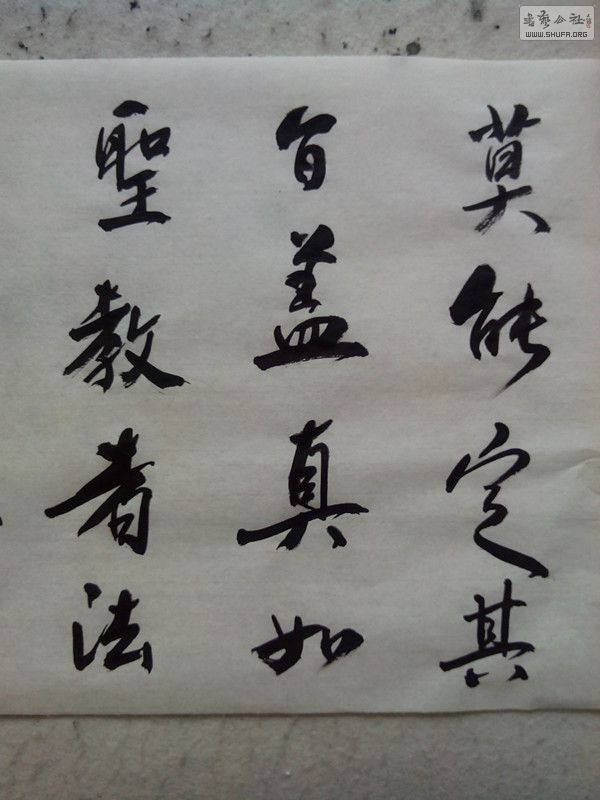 莫能定其
旨盖真如
聖教者法
書藝公社
WWW.SHUFA.ORG